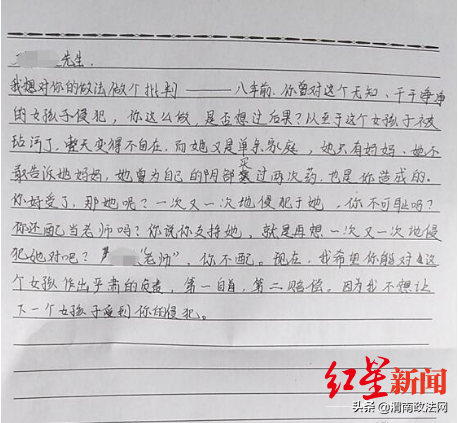 先生.
我想对你的做法做个批判——八年前.你曾对这个无知、干干净净
的女孩子侵犯,你这么做,是否想过后果?从至于这个女孩子被
玷污了,整天变得不自在.而她又是单亲家庭,她只有妈妈、她不
敢告诉她妈妈,她曾为自己的阴部买过两次药,也是你造成的.
你好受了,那她呢?一次又一次地侵犯于她,你不可耻吗?
你还配当老师吗?你说你支持她,就是再想一次又一次地侵
犯她对吧? "老师",你不配.现在,我希望你能对这
个女孩作出严肃的负责,第一自首,第二赔偿。因为我不想让
下一个女孩子受到你的侵犯。
红星新闻
头条@渭南政法网